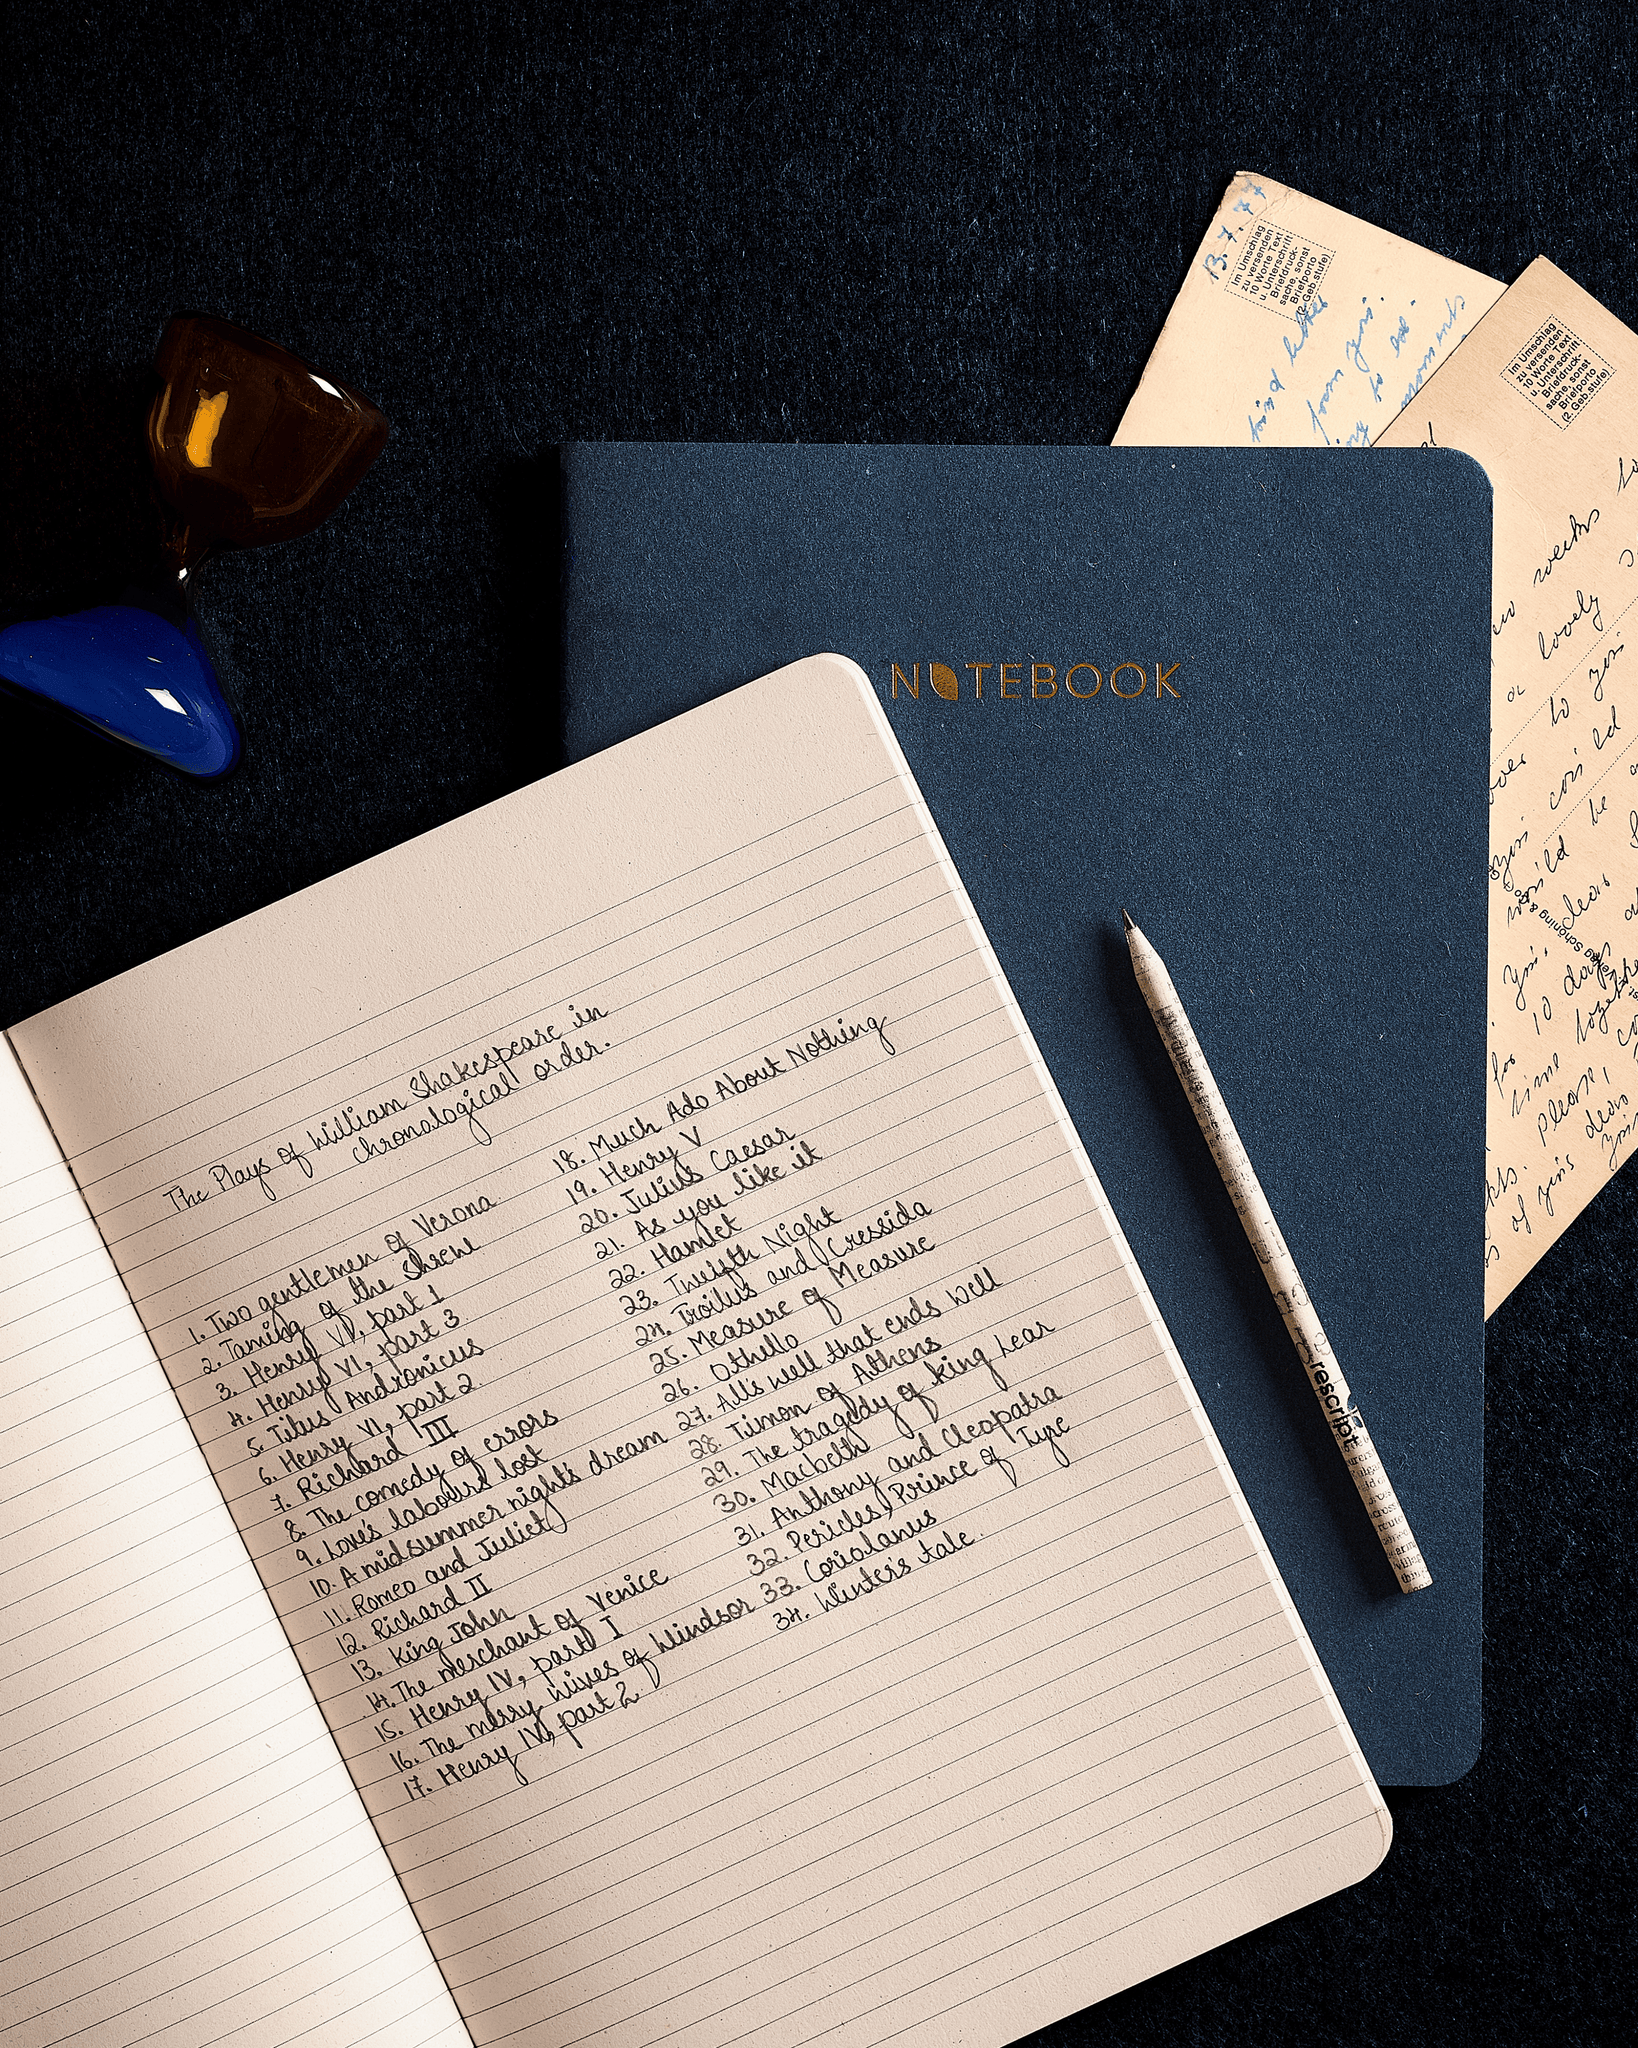 The Plays of William Shakespeare in
chronological order.
1. Two gentlemen of Verona
2. Taming of the Shrew
3. Henry VI, part 1
4. Henry VI, part 3
5. Titus Andronicus
6. Henry VI, part 2
7. Richard III
8. The comedy of errors
9. Love's labours lost
10. A midsummer night's dream
11. Romeo and Juliet
12. Richard II
13. King John
14. The merchant of Venice
15. Henry IV, part I
16. The merry wives of Windsor
17. Henry IV, part 2
18. Much Ado About Nothing
19. Henry V
20. Julius Caesar
21. As you like it
22. Hamlet
23. Twelfth Night
24. Troilus and Cressida
25. Measure of Measure
26. Othello
27. All's well that ends well
28. Timon of Athens
29. The tragedy of king Lear
30. Macbeth
31. Anthony and Cleopatra
32. Pericles, Prince of Tyre
33. Coriolanus
34. Winter's tale
NOTEBOOK
rescript
13.7.77
Im Umschlag
zu versenden
10 Worte Text
u. Unterschrift
Briefdruck-
sache, sonst
Briefporto
(2. Geb.stufe)
kind letter
from you.
to
moments
Im Umschlag
zu versenden
10 Worte Text
u. Unterschrift
Briefdruck-
sache, sonst
Briefporto
(2. Geb.stufe)
weeks
a lovely
over to you
you could
would be
dear
you.
10 days
for together
time
please,
dear
of your
& Schöning